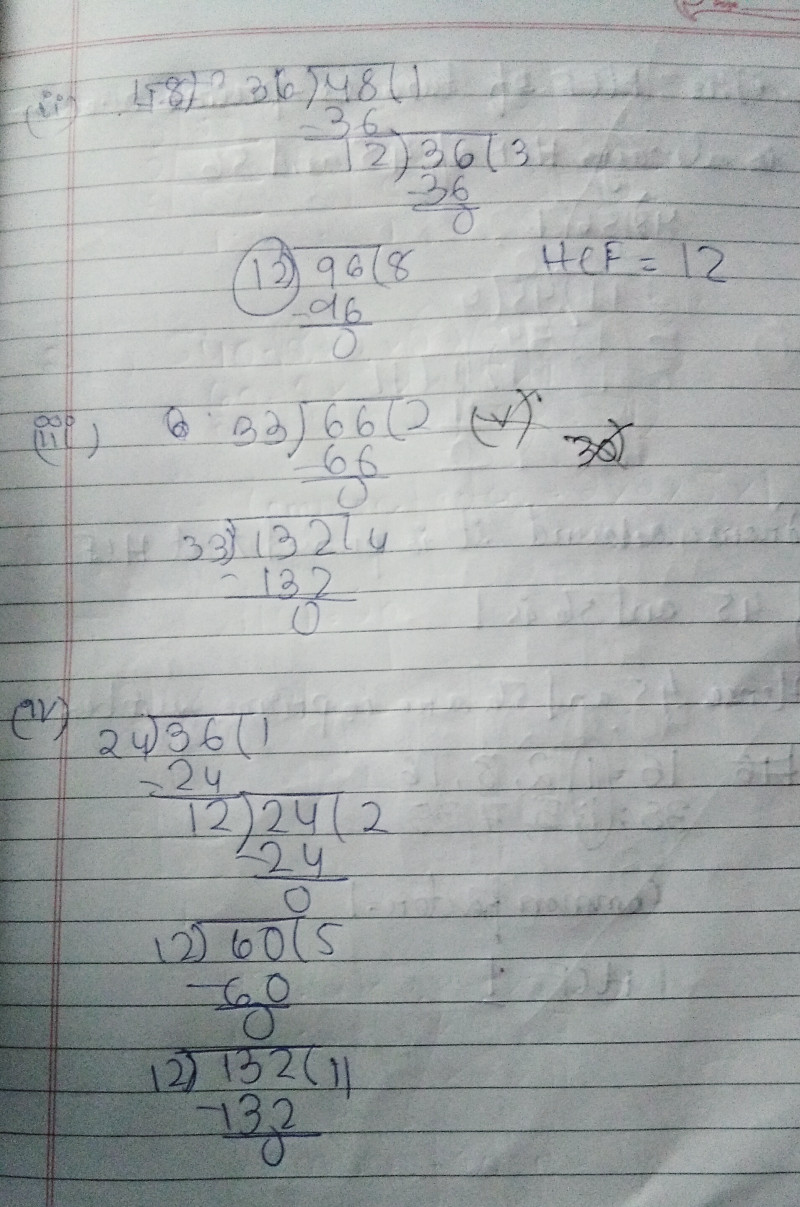 (ii) 48) 36)48(1
-36
12)36(3
-36
0
12)96(8 HCF = 12
-96
0
(iii) 33)66(2 (v)
-66 36)
0
33)132(4
-132
0
(iv)
24)36(1
-24
12)24(2
-24
0
12)60(5
-60
0
12)132(11
-132
0